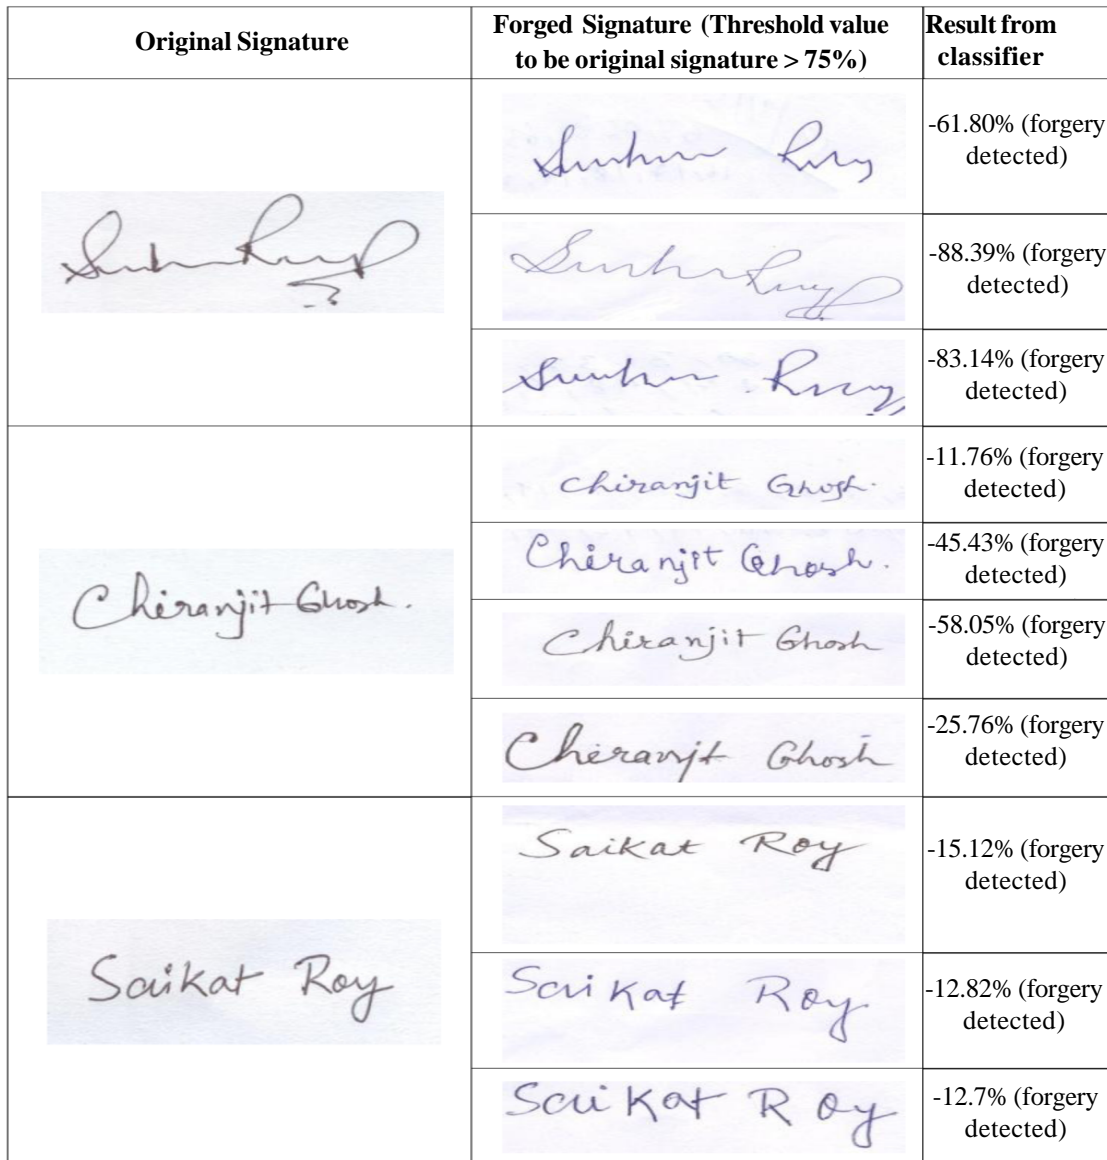 Original Signature
Forged Signature (Threshold value
to be original signature > 75%)
Result from
classifier
-61.80% (forgery
detected)
-88.39% (forgery
detected)
-83.14% (forgery
detected)
Chiranjit Ghosh.
Chiranjit Ghosh.
-11.76% (forgery
detected)
Chiranjit Ghosh.
-45.43% (forgery
detected)
Chiranjit Ghosh
-58.05% (forgery
detected)
Chiranjit Ghosh
-25.76% (forgery
detected)
Saikat Roy
Saikat Roy
-15.12% (forgery
detected)
Saikat Roy
-12.82% (forgery
detected)
Saikat Roy
-12.7% (forgery
detected)